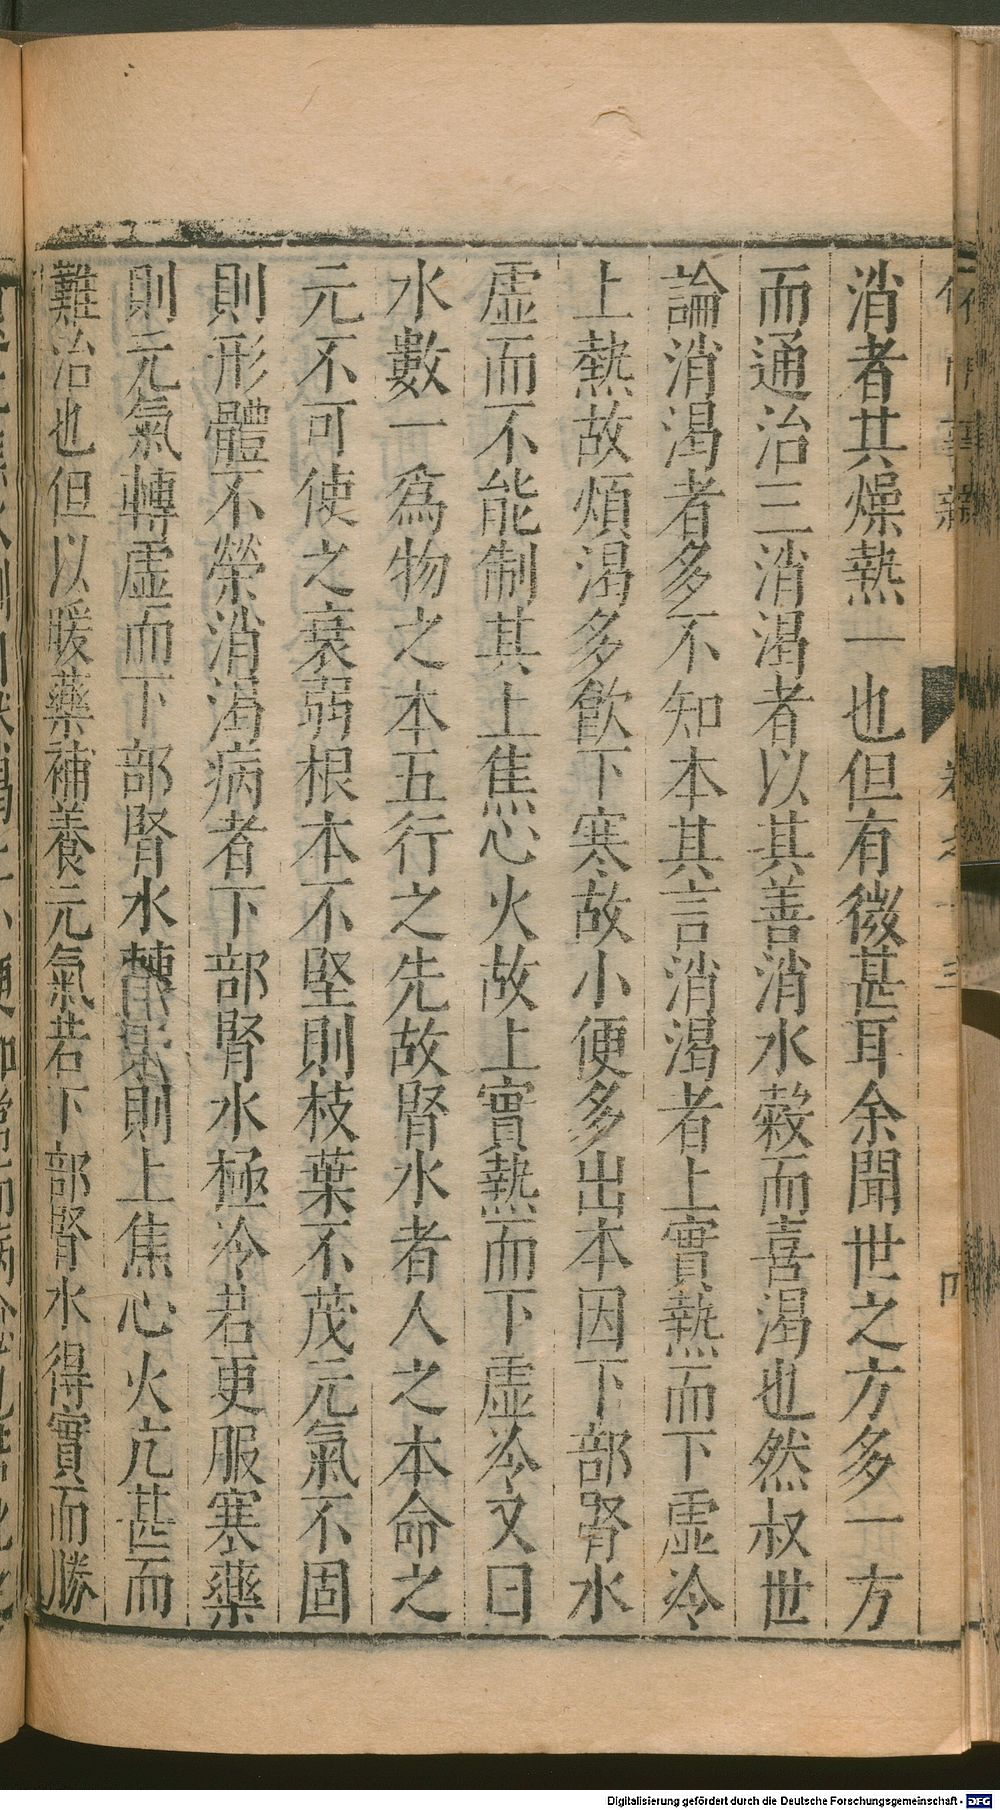 消者其燥熱一也但有微甚耳余聞世之方多一方
而通治三消渴者以其善消水穀而喜渴也然叔世
論消渴者多不知本其言消渴者上實熱而下虛冷
上熱故煩渴多飲下寒故小便多出本因下部腎水
虛而不能制其上焦心火故上實熱而下虛冷又曰
水數一爲物之本五行之先故腎水者人之本命之
元不可使之衰弱根本不堅則枝葉不茂元氣不固
則形體不榮消渴病者下部腎水極冷若更服寒藥
則元氣轉虛而下部腎水轉則上焦心火亢甚而
難治也但以暖藥補養元氣若下部腎水得實而勝
卷之十三
Digitalisierung gefördert durch die Deutsche Forschungsgemeinschaft - DFG